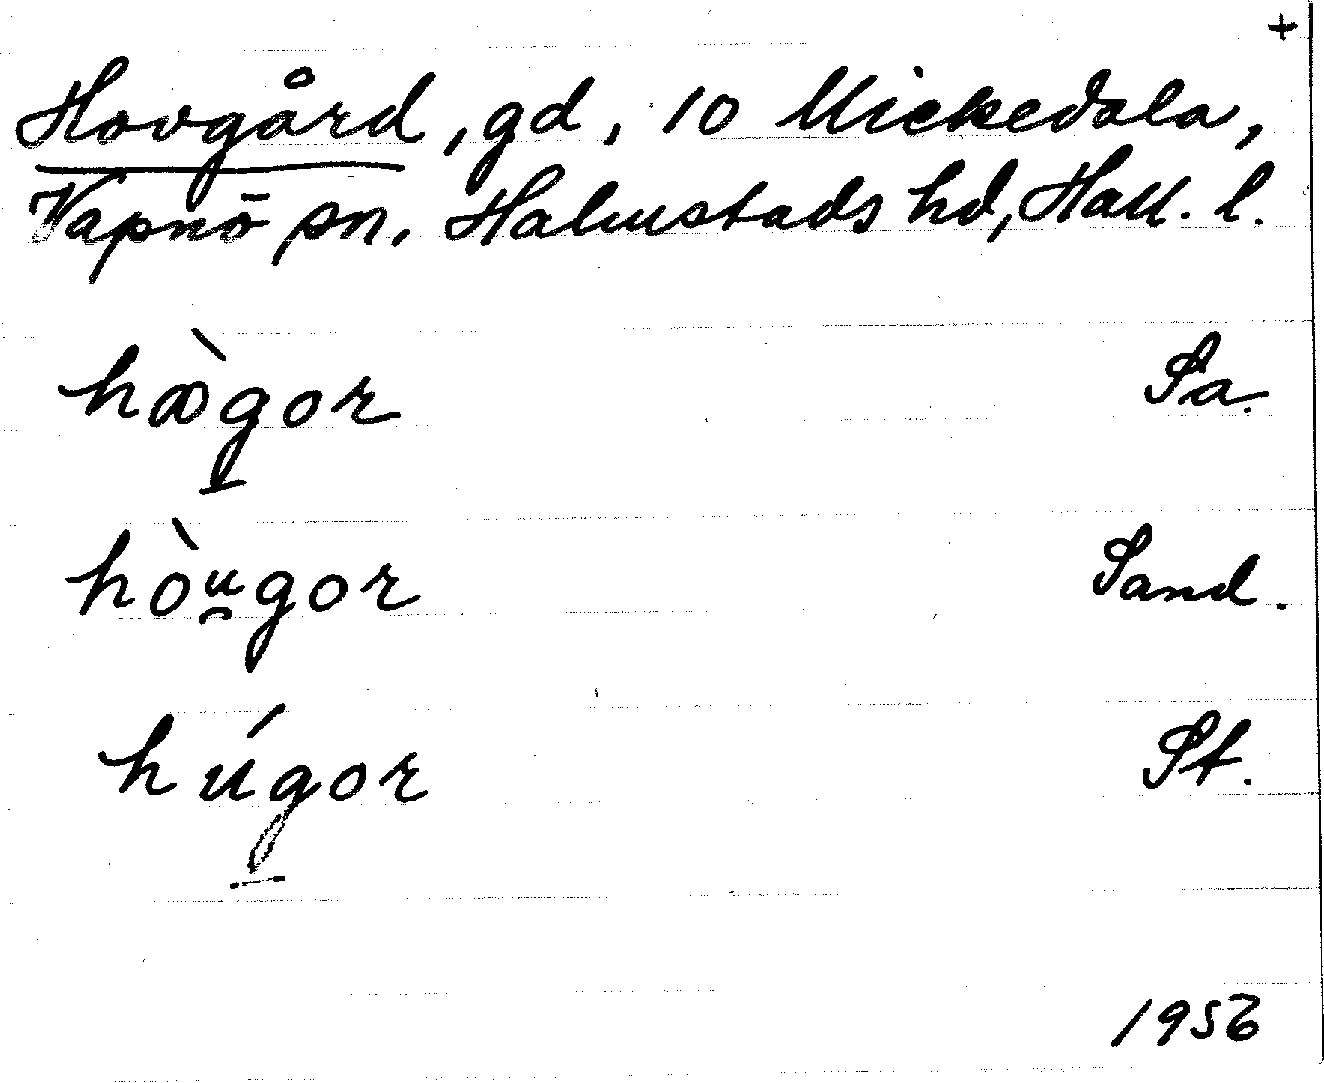 +
Hovgård, gd, 10 Mickedala,
Vapnö sn. Halmstads hd, Hall. l.
hægor Sa.
hòu̯gor Sand.
húgor St.
1956